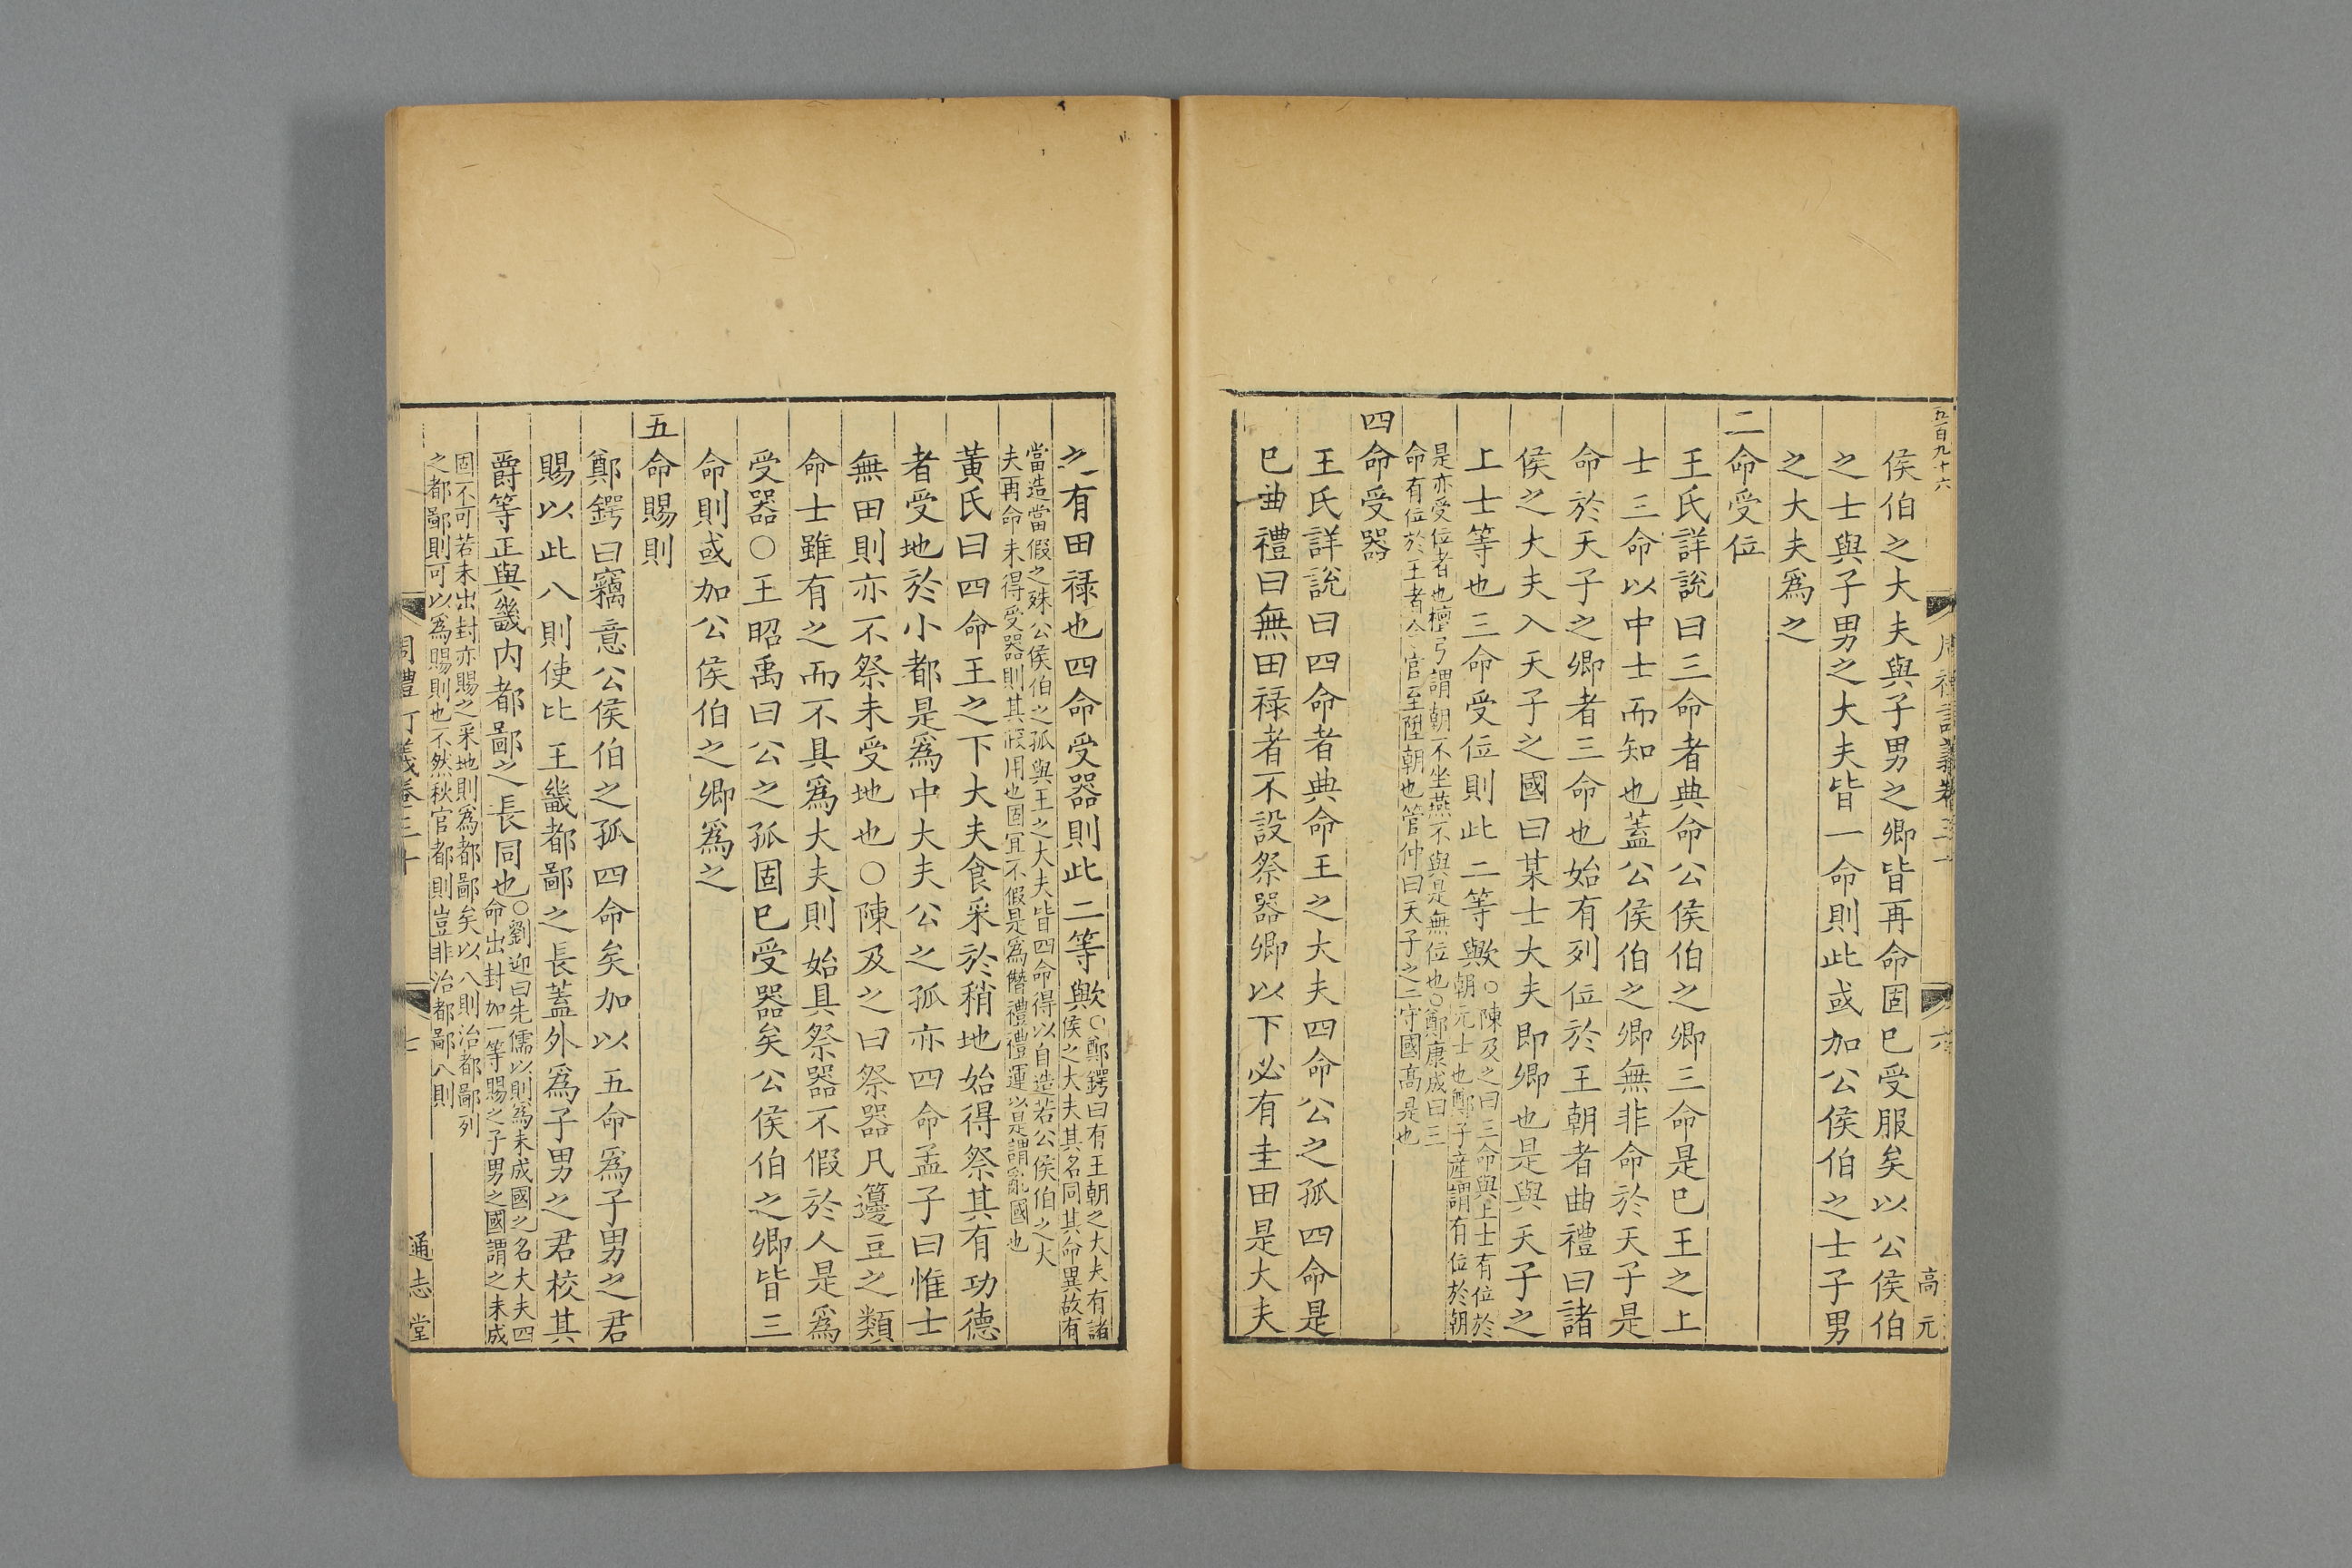 五百九十六
侯伯之大夫與子男之卿皆再命固已受服矣以公侯伯
之士與子男之大夫皆一命則此或加公侯伯之士子男
之大夫爲之
三命受位
王氏詳說曰三命者典命公侯伯之卿三命是已王之上
士三命以中士而知也蓋公侯伯之卿無非命於天子是
命於天子之卿者三命也始有列位於王朝者曲禮曰諸
侯之大夫入天子之國曰某士大夫即卿也是與天子之
上士等也三命受位則此二等歟○陳及之曰三命與上士有位於
朝元士也鄭子産謂有位於朝
是亦受位者也檀弓謂朝不坐燕不與是無位也○鄭康成曰三
命有位於王者今官至陞朝也管仲曰天子之二守國高是也
四命受器
王氏詳說曰四命者典命王之大夫四命公之孤四命是
已曲禮曰無田祿者不設祭器卿以下必有圭田是大夫
高元
之有田祿也四命受器則此二等歟○鄭鍔曰有王朝之大夫有諸
侯之大夫其名同其命異故有
當造當假之殊公侯伯之孤與王之大夫皆四命得以自造若公侯伯之大
夫再命未得受器則其假用也固宜不假是爲僭禮禮運以是謂亂國也
黃氏曰四命王之下大夫食采於稍地始得祭其有功德
者受地於小都是爲中大夫公之孤亦四命孟子曰惟士
無田則亦不祭未受地也○陳及之曰祭器凡籩豆之類
命士雖有之而不具爲大夫則始具祭器不假於人是爲
受器○王昭禹曰公之孤固已受器矣公侯伯之卿皆三
命則或加公侯伯之卿爲之
五命賜則
鄭鍔曰竊意公侯伯之孤四命矣加以五命爲子男之君
賜以此八則使比王畿都鄙之長蓋外爲子男之君校其
爵等正與畿内都鄙之長同也○劉迎曰先儒以則爲未成國之名大夫四
命出封加一等賜之子男之國謂之未成
固不可若未出封亦賜之采地則爲都鄙矣以八則治都鄙列
之都鄙則可以爲賜則也不然秋官都則豈非治都鄙八則
周禮訂義卷三十
七
通志堂